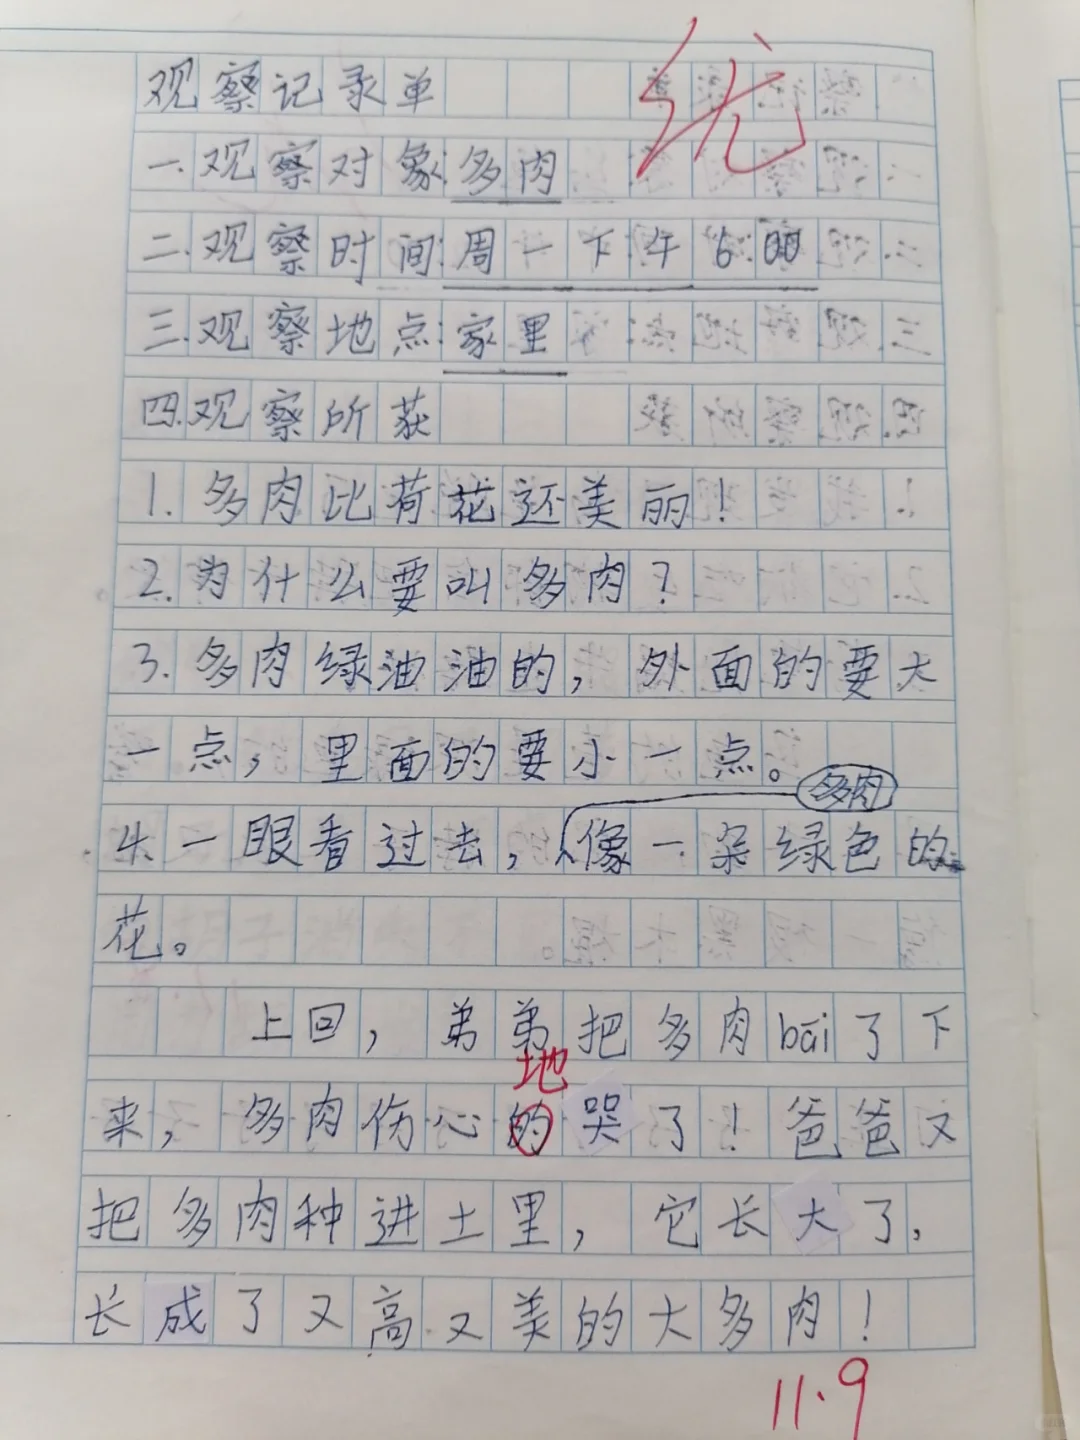 观察记录单
优
一.观察对象:多肉
二.观察时间:周一下午6:00
三.观察地点:家里
四.观察所获
1.多肉比荷花还美丽!
2.为什么要叫多肉?
3.多肉绿油油的,外面的要大
一点,里面的要小一点。
多肉
4.一眼看过去,像一朵绿色的
花。
上回,弟弟把多肉bāi了下
地
来,多肉伤心的哭了!爸爸又
把多肉种进土里,它长大了,
长成了又高又美的大多肉!
11.9